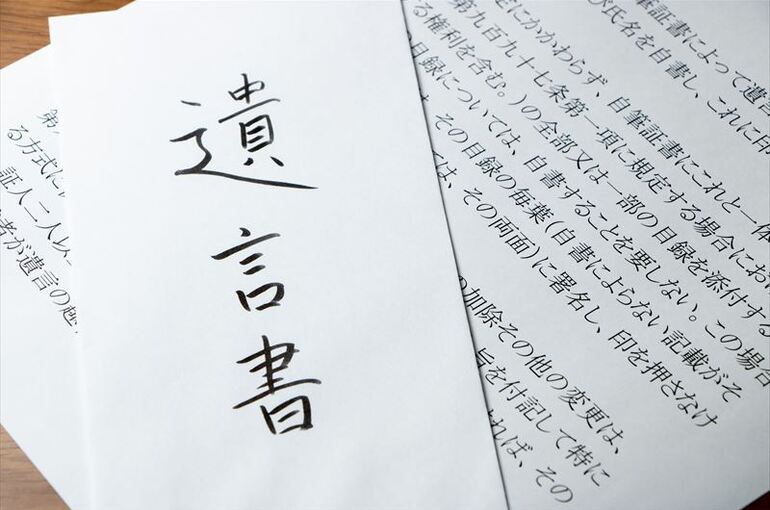 遺言書
筆証書によって遺
び氏名を自書し、これに印
定にかかわらず、自筆証書にこれと一体
第九百九十七条第一項に規定する場合にお
る権利を含む。)の全部又は一部の目録を添付する
目録については、自書することを要しない。この場合
その目録の毎葉(自書によらない記載がそ
は、その両面)に署名し、印を押さなけ
加除その他の変更は、
旨を付記して特に
れば、その
第
る方式に
証人二人以
者が遺言の趣